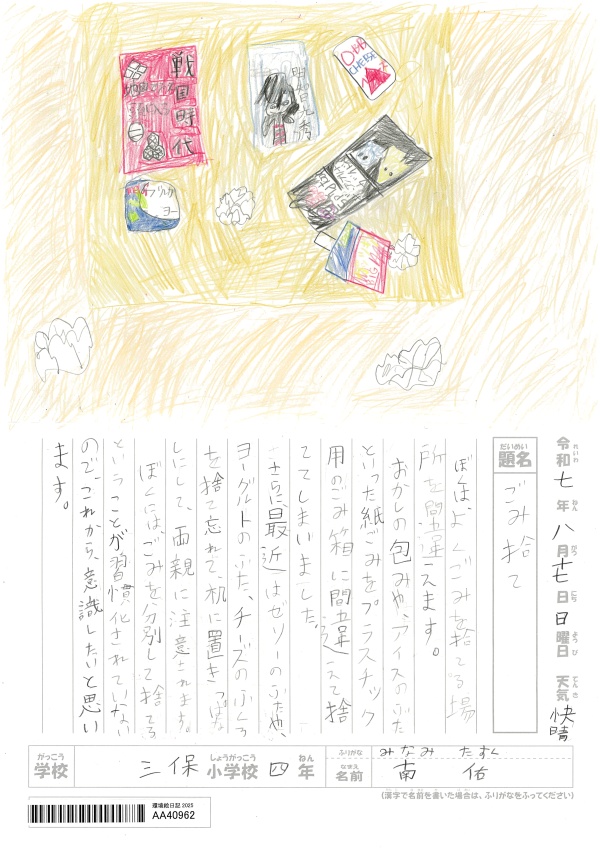 戦
国
時
代
明智光秀
CHEESE
BIG
令和七年八月十七日日曜日 天気 快晴
れいわ ねん がつ にち ようび てんき
だいめい
題名
ごみ捨て
ぼくは、よくごみを捨てる場
所を間違えます。
おかしの包みや、アイスのふた
といった紙ごみをプラスチック
用のごみ箱に間違えて捨
ててしまいました。
さらに最近はゼリーのふたや、
ヨーグルトのふた、チーズのふくろ
を捨て忘れて、机に置きっぱな
しにして、両親に注意されます。
ぼくにはごみを分別して捨てる
ということが習慣化されていない
ので、これから、意識したいと思い
ます。
がっこう しょうがっこう ねん ふりがな みなみ たすく
学校 三保小学校四年 なまえ 名前 南 佑
(漢字で名前を書いた場合は、ふりがなをふってください)
環境絵日記 2025
AA40962